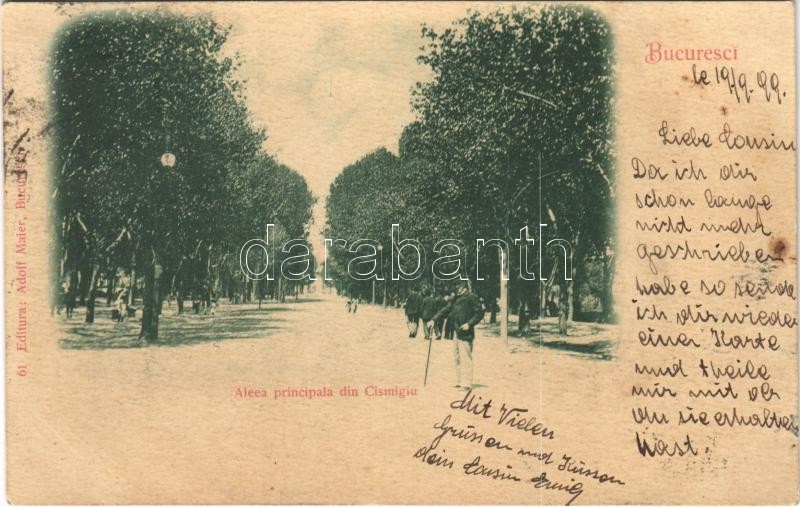 Bucuresci
le 19/9. 99.
Liebe Cousin
Da ich dir
schon lange
nicht mehr
geschrieben
habe so sende
ich dir wieder
einer Karte
und theile
mir mit ob
du sie erhalten
hast.
Mit Vielen
Grüssen und Küssen
dein Cousin
61 Editura: Adolf Maier, Bucuresci
Aleea principala din Cismigiu
darabanth